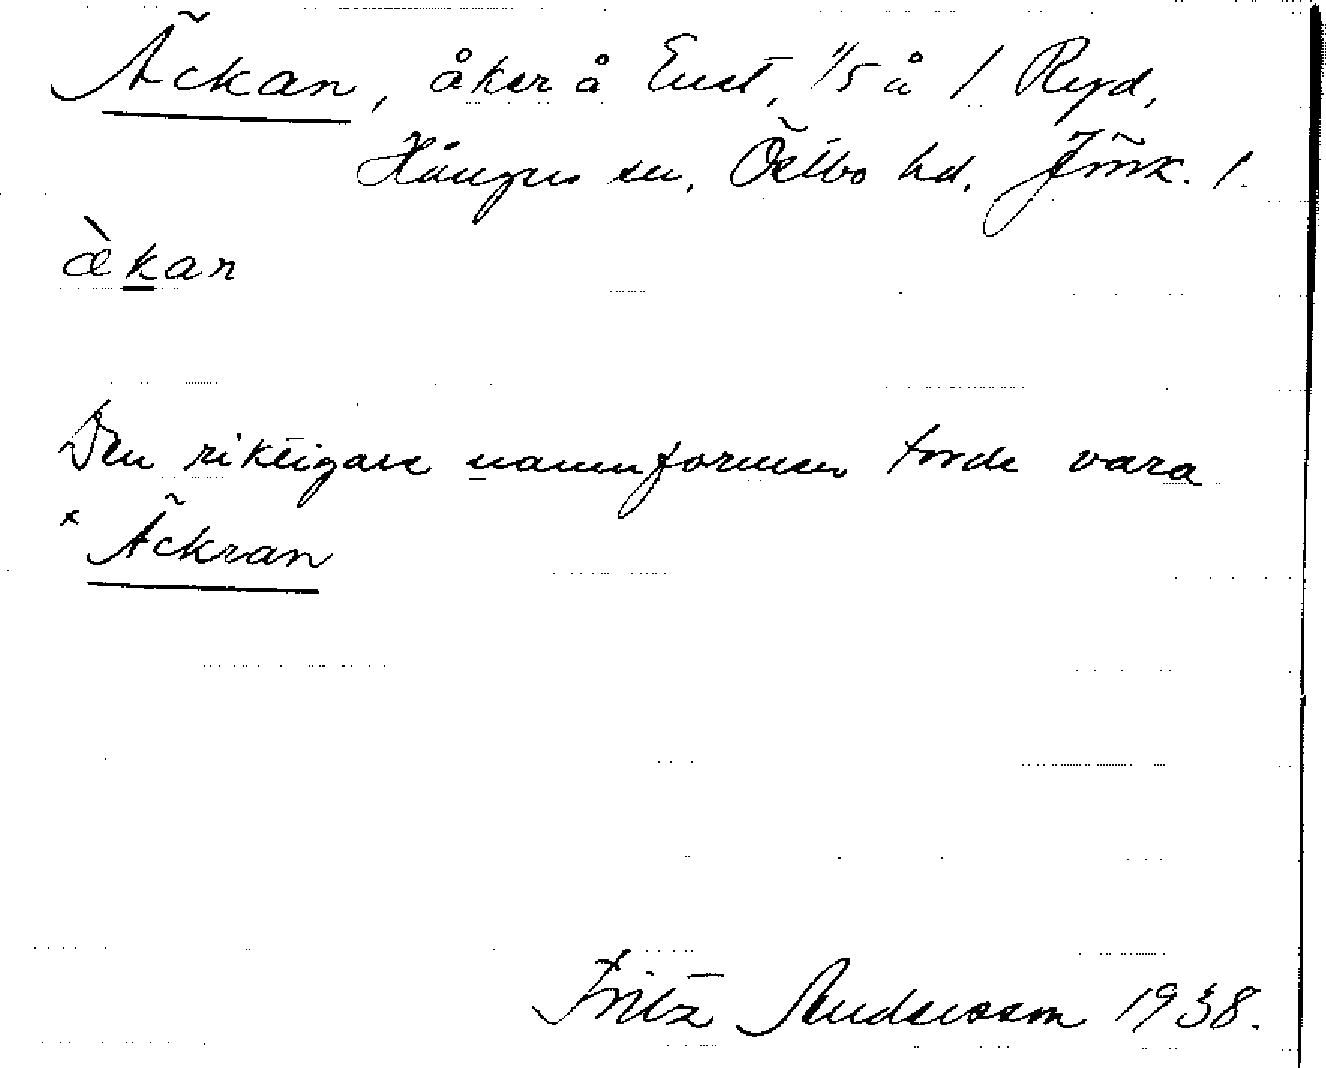 Äckan, åker å Enet, 1/5 å 1 Ryd,
Hångers sn, Östbo hd. Jönk. l.
æ̀kan
Den riktigare namnformen torde vara
× Äckran
Fritz Andersson 1938.